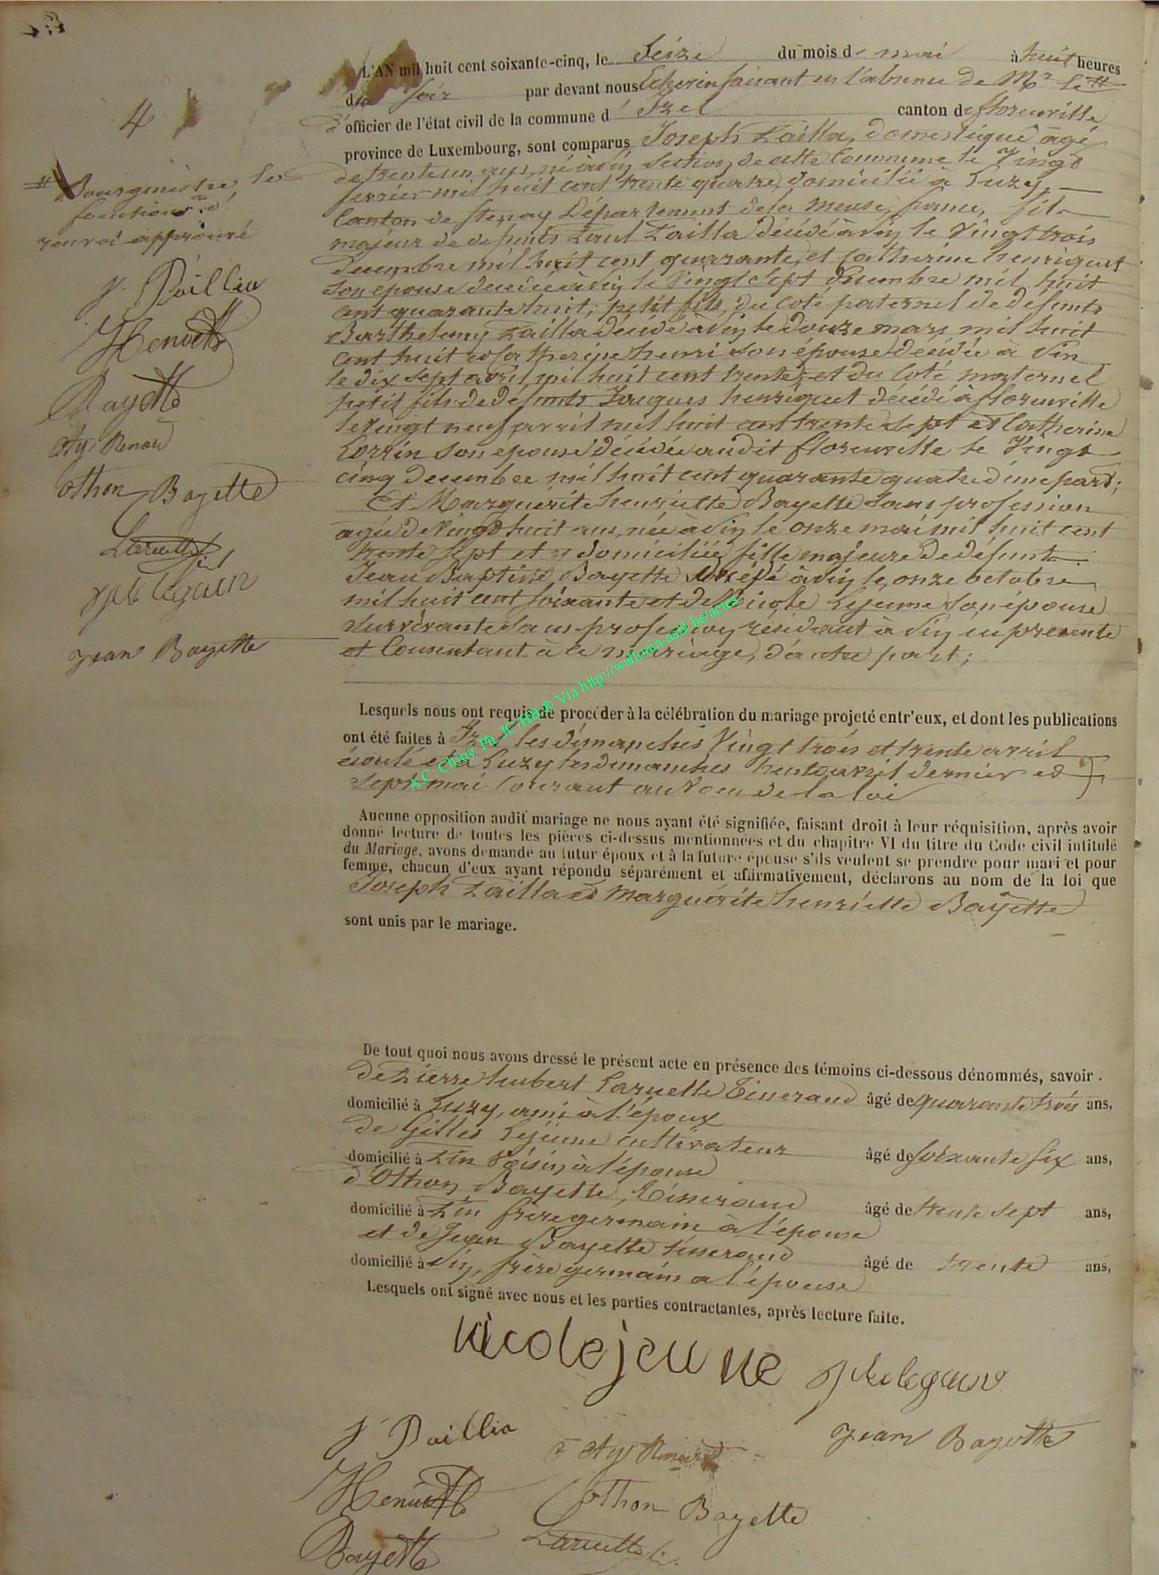 4
L'AN mil huit cent soixante-cinq, le Seize du mois de mai à huit heures
du soir par devant nous Echevin faisant en l'absence de Mr. le #
d'officier de l'état civil de la commune d' Izel canton de florenville
province de Luxembourg, sont comparus Joseph Pailla, domestique âgé
de trente un ans, né à Pin Section de cette Commune le Vingt
février mil huit cent trente quatre, domicilié à Luzy,
Canton de Stenay Département de la Meuse, france, fils
majeur de defunts Paul Pailla décédé à Pin le Vingt trois
decembre mil huit cent quarante, et Catherine henriquet
son epouse decedée à Pin le Vingt Sept decembre mil huit
cent quarante huit; petit fils, du Coté paternel de defunts
Barthelemy Pailla décédé à Pin le douze mars mil huit
cent huit et Catherine henri son épouse décédée à Pin
le dix sept avril mil huit cent trente, et du Coté maternel
petit fils de defunts Jacques henriquet décédé à florenville
le Vingt neuf avril mil huit cent trente sept et Catherine
son epouse décédée audit florenville le Vingt
cinq decembre mil huit cent quarante quatre d'une part;
Et Marguerite henriette Bayette Sans profession
agée de Vingt huit ans, née à Pin le onze mai mil huit cent
trente Sept et y domiciliée, fille majeure de defunt
Jean Baptiste Bayette décédé à Pin le onze octobre
mil huit cent soixante et de Nicole Lejeune son épouse
Survivante Sans profession, résidant à Pin ici presente
et Consentant à ce mariage, d'autre part;
# Bourgmestre, les
fonctions d'
renvoi approuvé
J. Pailla
Henriette
Bayette
Othon Bayette
Laruelle
Jean Bayette
Lesquels nous ont requis de procéder à la célébration du mariage projeté entr'eux, et dont les publications
ont été faites à Izel les dimanches Vingt trois et trente avril
écoulé et à Luzy les dimanches trente avril dernier et
Sept mai Courant au voeu de la loi
Aucune opposition audit mariage ne nous ayant été signifiée, faisant droit à leur réquisition, après avoir
donné lecture de toutes les pièces ci-dessus mentionnées et du chapitre VI du titre du Code civil intitulé
du Mariage, avons demandé au futur époux et à la future épouse s'ils veulent se prendre pour mari et pour
femme, chacun d'eux ayant répondu séparément et affirmativement, déclarons au nom de la loi que
Joseph Pailla et Marguerite henriette Bayette
sont unis par le mariage.
De tout quoi nous avons dressé le présent acte en présence des témoins ci-dessous dénommés, savoir :
de Pierre hubert Laruelle Tisserand âgé de quarante trois ans,
domicilié à Luzy, ami à l'époux
de Gilles Lejeune cultivateur âgé de soixante six ans,
domicilié à Pin Voisin à l'épouse
d'Othon Bayette, Tisserand âgé de trente sept ans,
domicilié à Pin frère germain à l'épouse
et de Jean Bayette tisserand âgé de trente ans,
domicilié à Pin, frère germain a l'épouse
Lesquels ont signé avec nous et les parties contractantes, après lecture faite.
Nicole jeune
J Pailla
Jean Bayette
Henriette
Othon Bayette
Bayette
Laruelle
A.C. Chiny Ph. JC HD ® Via http://wallonia-asbl.be/actes